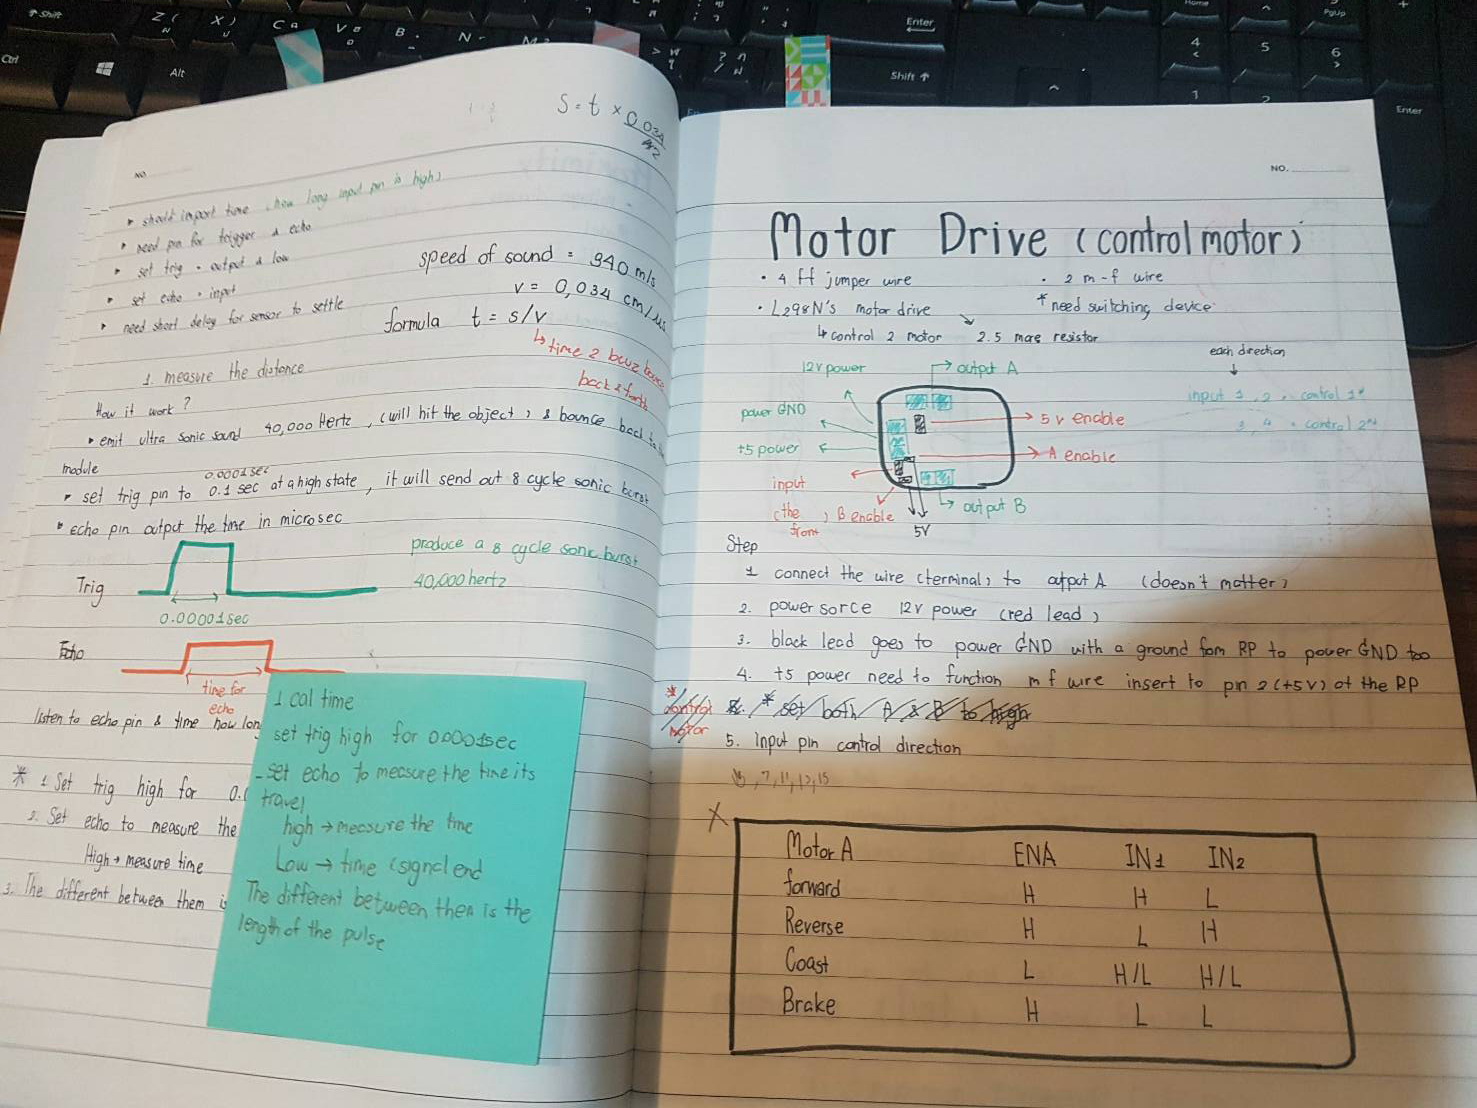 S = t × 0.034
NO.
▸ should import time (how long input pin is high)
▸ need pin for trigger & echo
▸ set trig • output & low
▸ set echo • input
▸ need short delay for sensor to settle
speed of sound = 340 m/s
v = 0,034 cm/us
formula t = s/v
↳ time 2 bcuz bounce
back & forth
1. measure the distance
How it work?
▸ emit ultra sonic sound 40,000 Hertz, (will hit the object) & bounce back to the
module
0.0001 sec
▸ set trig pin to 0.1 sec at a high state, it will send out 8 cycle sonic burst
▸ echo pin output the time in microsec
produce a 8 cycle sonic burst
40,000 hertz
Trig
0.00001 sec
Echo
time for
echo
listen to echo pin & time how long
* 1 Set trig high for 0.
2. Set echo to measure the
High → measure time
3. The different between them is
1 cal time
set trig high for 0.0001sec
- set echo to measure the time its
travel
high → measure the time
Low → time (signal end
The different between then is the
length of the pulse
NO.
Motor Drive (control motor)
• 4 ff jumper wire
• 2 m-f wire
• L298N's motor drive
* need switching device
↳ control 2 motor
2.5 more resistor
each direction
input 1, 2 • control 1st
3, 4 • control 2nd
12v power
output A
power GND
5v enable
+5 power
A enable
input
(the
front)
B enable
output B
5V
Step
1 connect the wire (terminal) to output A (doesn't matter)
2. power sorce 12v power (red lead)
3. black lead goes to power GND with a ground fom RP to power GND too
4. +5 power need to function m f wire insert to pin 2 (+5v) of the RP
* control motor
* set both A & B to high
5. Input pin control direction
, 7, 11, 13, 15
X
Motor A ENA IN1 IN2
forward H H L
Reverse H L H
Coast L H/L H/L
Brake H L L